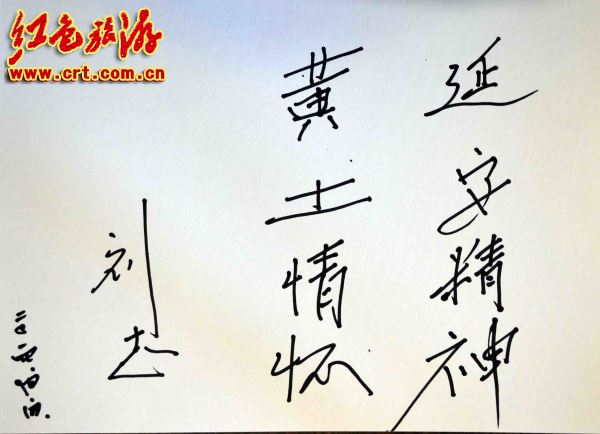 红色旅游
www.crt.com.cn
延安精神
黄土情怀
刘